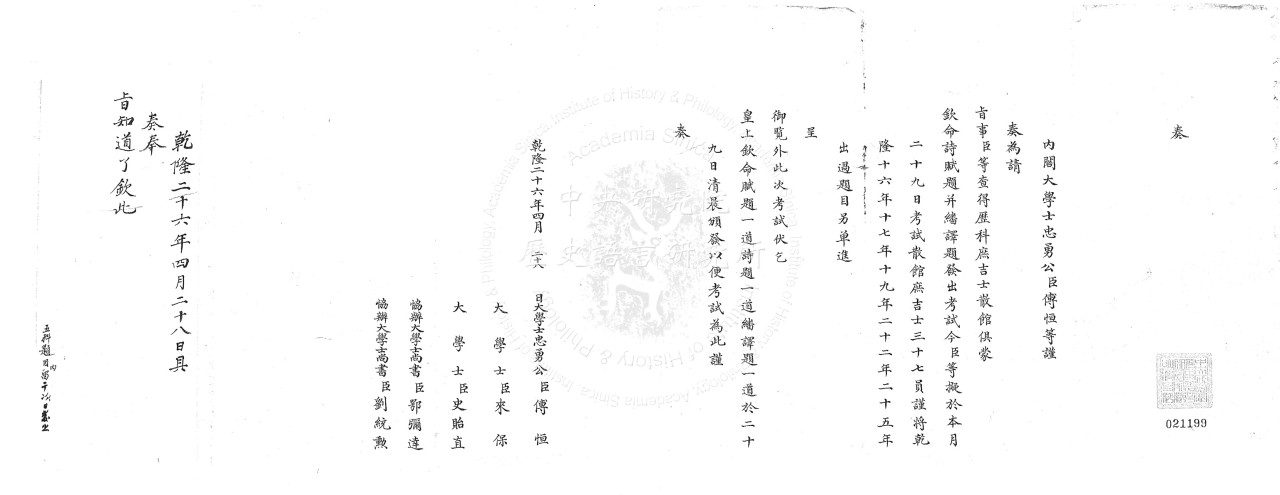 奏
內閣大學士忠勇公臣傅恒等謹
奏為請
旨事臣等查得歷科庶吉士散館俱蒙
欽命詩賦題并繙譯題發出考試今臣等擬於本月
二十九日考試散館庶吉士三十七員謹將乾
隆十六年十七年十九年二十二年二十五年
出過題目另單進
呈
御覽外此次考試伏乞
皇上欽命賦題一道詩題一道繙譯題一道於二十
九日清晨頒發以便考試為此謹
奏
乾隆二十六年四月 二十八 日大學士忠勇公臣傅恒
大學士臣來保
大學士臣史貽直
協辦大學士尚書臣鄂彌達
協辦大學士尚書臣劉統勲
乾隆二十六年四月二十八日具
奏奉
旨知道了欽此
五科題目
021199
中央研究院
歷史語言研究所
Institute of History & Philology, Academia Sinica